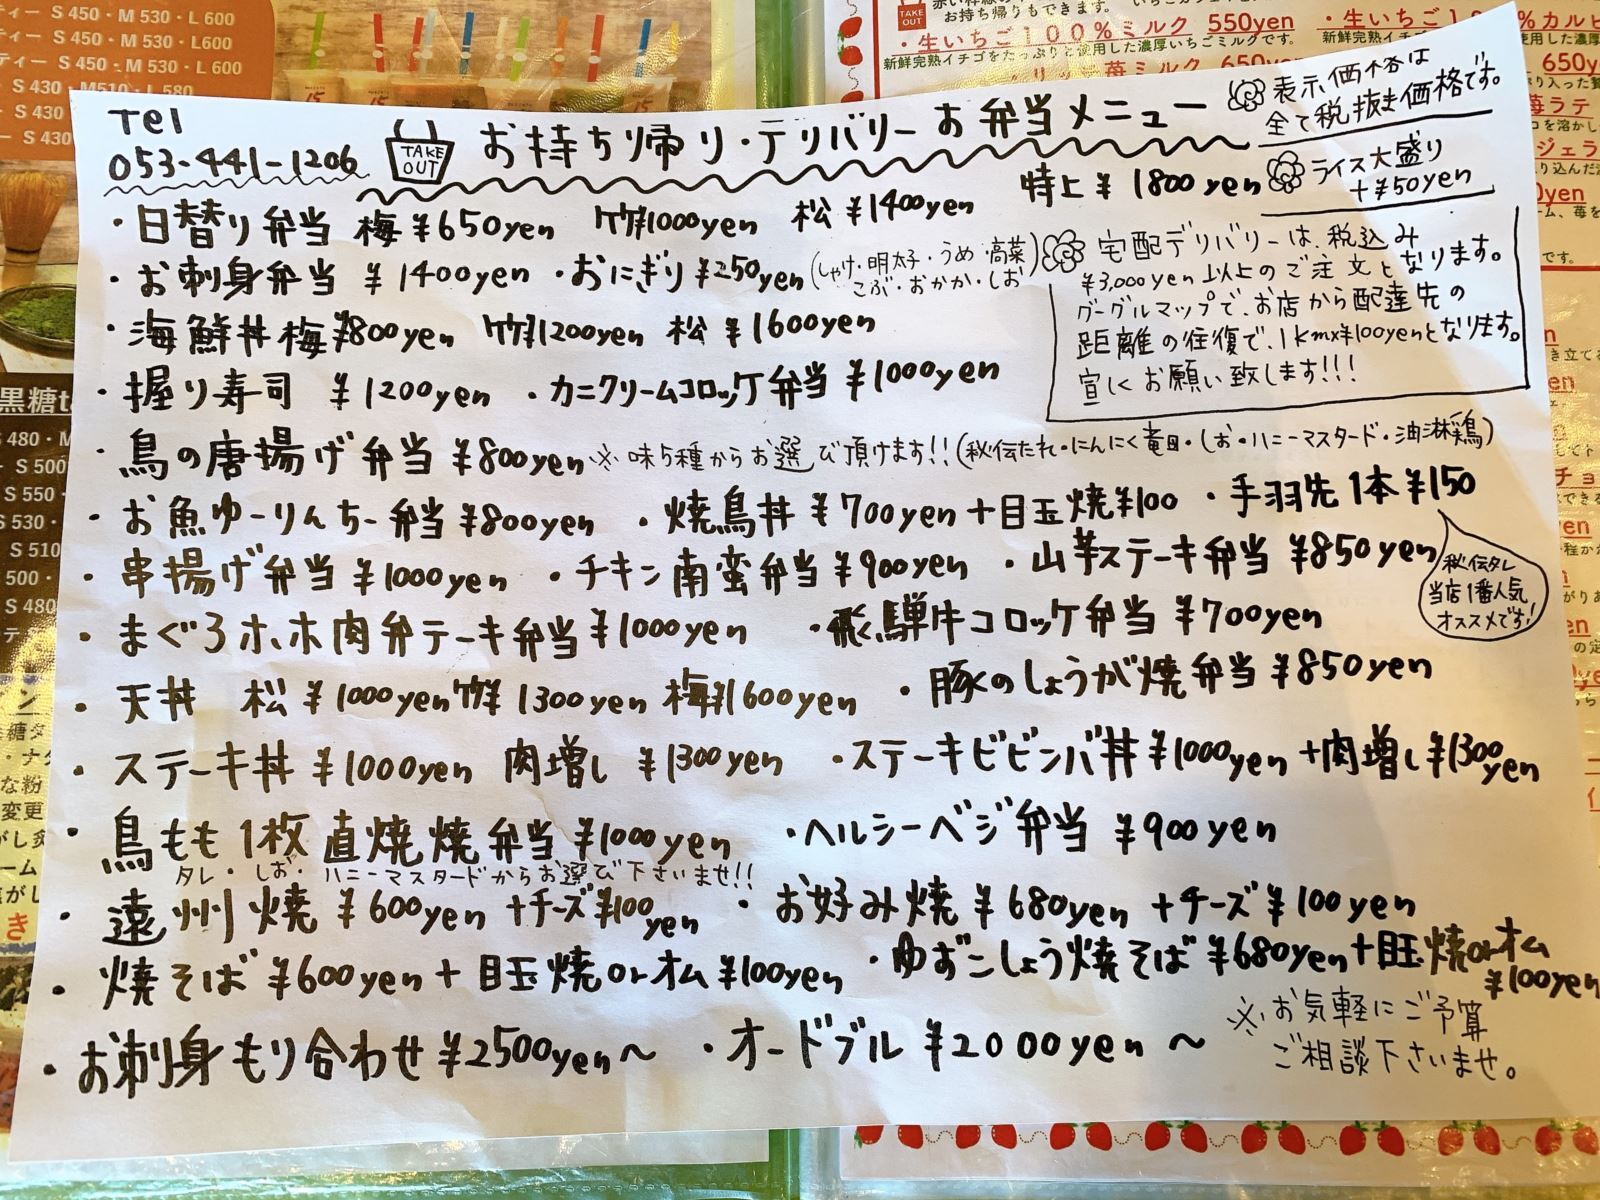 Tel
053-441-1206
TAKE OUT
お持ち帰り・デリバリーお弁当メニュー
表示価格は
全て税抜き価格です。
ライス大盛り
+¥50yen
・日替り弁当 梅¥650yen 竹¥1000yen 松¥1400yen 特上¥1800yen
・お刺身弁当 ¥1400yen ・おにぎり¥250yen (しゃけ・明太子・うめ・高菜
こぶ・おかか・しお)
宅配デリバリーは、税込み
¥3,000yen以上のご注文となります。
グーグルマップで、お店から配達先の
距離の往復で、1kmx¥100yenとなります。
宜しくお願い致します!!!
・海鮮丼 梅¥800yen 竹¥1200yen 松¥1600yen
・握り寿司 ¥1200yen ・カニクリームコロッケ弁当 ¥1000yen
・鳥の唐揚げ弁当 ¥800yen ※味5種からお選び頂けます!!(秘伝たれ・にんにく竜田・しお・ハニーマスタード・油淋鶏)
・お魚ゆーりんちー弁当 ¥800yen ・焼鳥丼 ¥700yen+目玉焼¥100 ・手羽先1本¥150
秘伝タレ
当店1番人気
オススメです!
・串揚げ弁当 ¥1000yen ・チキン南蛮弁当 ¥900yen ・山芋ステーキ弁当 ¥850yen
・まぐろホホ肉弁テーキ弁当 ¥1000yen ・飛騨牛コロッケ弁当 ¥700yen
・天丼 松¥1000yen 竹¥1300yen 梅¥1600yen ・豚のしょうが焼弁当 ¥850yen
・ステーキ丼 ¥1000yen 肉増し ¥1300yen ・ステーキビビンバ丼 ¥1000yen +肉増し¥1300yen
・鳥もも1枚直焼焼弁当 ¥1000yen ・ヘルシーベジ弁当 ¥900yen
タレ・しお・ハニーマスタードからお選び下さいませ!!
・遠州焼 ¥600yen +チーズ¥100yen ・お好み焼 ¥680yen +チーズ¥100yen
・焼そば ¥600yen+目玉焼orオム ¥100yen ・ゆずこしょう焼そば ¥680yen+目玉焼orオム
¥100yen
・お刺身もり合わせ ¥2500yen〜 ・オードブル ¥2000yen〜
※お気軽にご予算
ご相談下さいませ。
ティー S 450・M 530・L 600
ティー S 450・M 530・L600
ティー S 450・M 530・L 600
S 430・M510・L 580
TAKE OUT
お持ち帰りもできます。
・生いちご100%ミルク 550yen
新鮮完熟イチゴをたっぷりと使用した濃厚いちごミルクです。